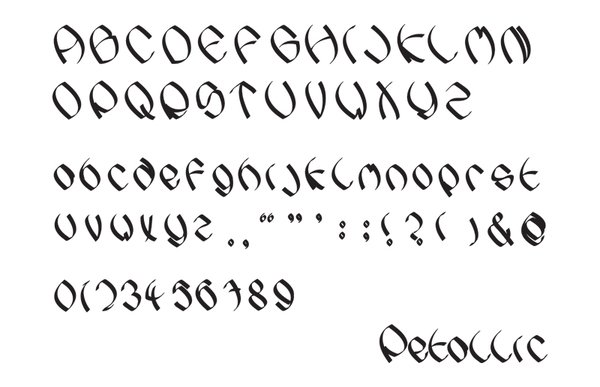 ABCDEFGHIJKLMN
OPQRSTUVWXYZ
abcdefghijklmnoprst
uvwxyz.,“”’:;!?()&@
0123456789
Petallic